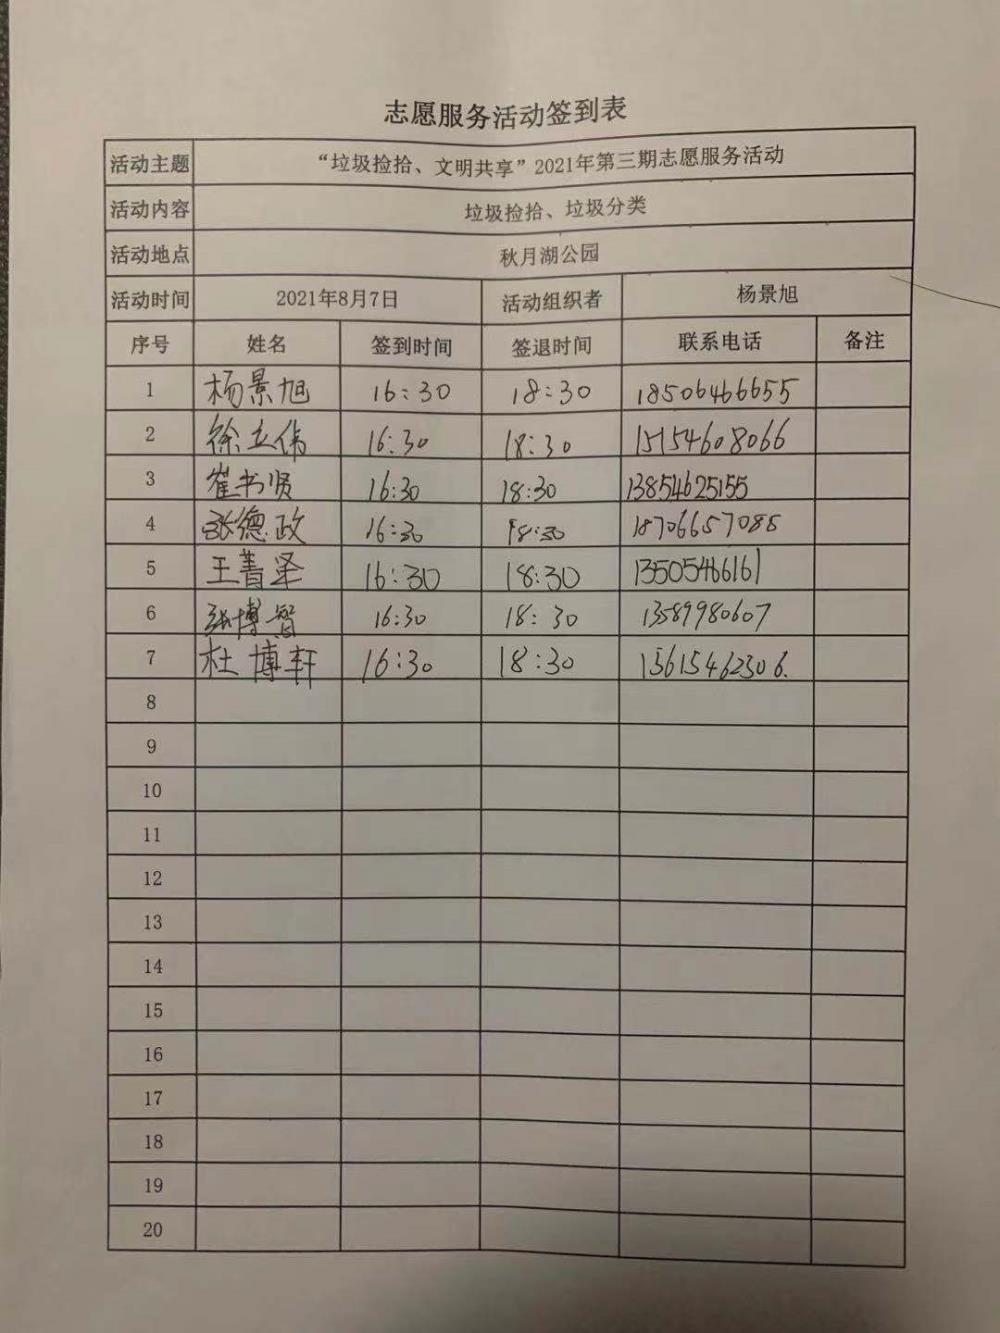 志愿服务活动签到表
活动主题 “垃圾捡拾、文明共享”2021年第三期志愿服务活动
活动内容 垃圾捡拾、垃圾分类
活动地点 秋月湖公园
活动时间 2021年8月7日 活动组织者 杨景旭
序号 姓名 签到时间 签退时间 联系电话 备注
1 杨景旭 16:30 18:30 18506466655
2 徐立伟 16:30 18:30 15154608066
3 崔书贤 16:30 18:30 13854625155
4 张德政 16:30 18:30 18706657085
5 王菁泽 16:30 18:30 13505466161
6 张博智 16:30 18:30 13589980607
7 杜博轩 16:30 18:30 15615462306.
8
9
10
11
12
13
14
15
16
17
18
19
20